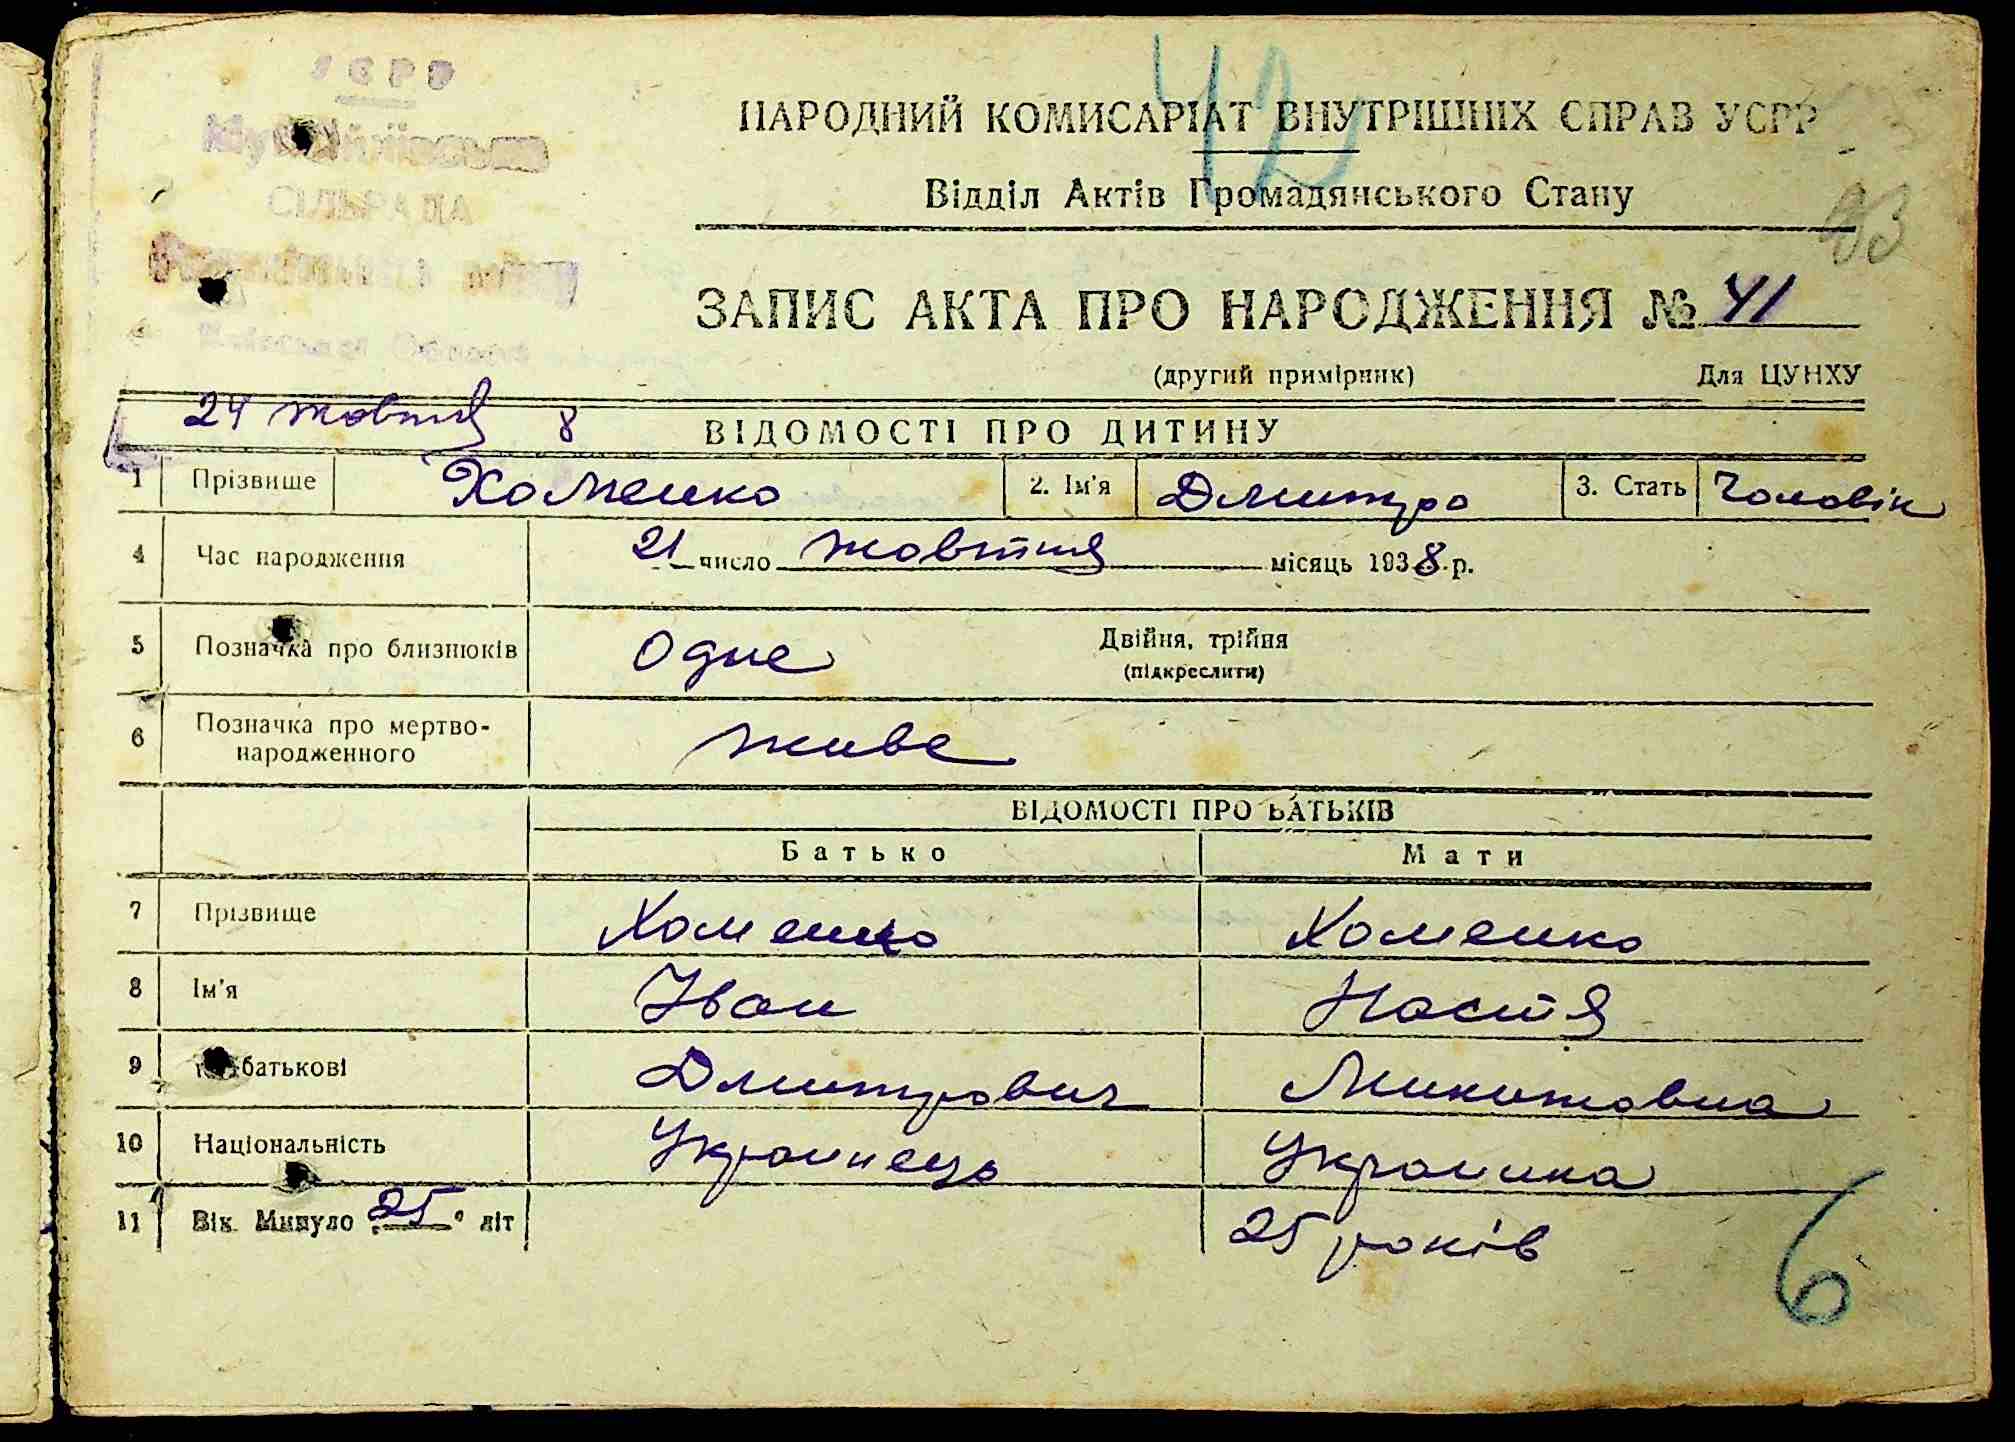 УСРР
СІЛЬРАДА
42
НАРОДНИЙ КОМИСАРІАТ ВНУТРІШНІХ СПРАВ УСРР
Відділ Актів Громадянського Стану
93
ЗАПИС АКТА ПРО НАРОДЖЕННЯ № 41
(другий примірник) Для ЦУНХУ
24 жовтня 8
ВІДОМОСТІ ПРО ДИТИНУ
1 Прізвище Хоменко 2. Ім'я Дмитро 3. Стать Чоловік
4 Час народження 21 число жовтня місяць 1938 р.
5 Позначка про близнюків Одне Двійня, трійня
(підкреслити)
6 Позначка про мертво-
народженного живе
ВІДОМОСТІ ПРО БАТЬКІВ
Батько Мати
7 Прізвище Хоменко Хоменко
8 Ім'я Іван Настя
9 батькові Дмитрович Микитовна
10 Національність Украинець Украинка
11 Вік. Минуло 25 літ 25 років
6